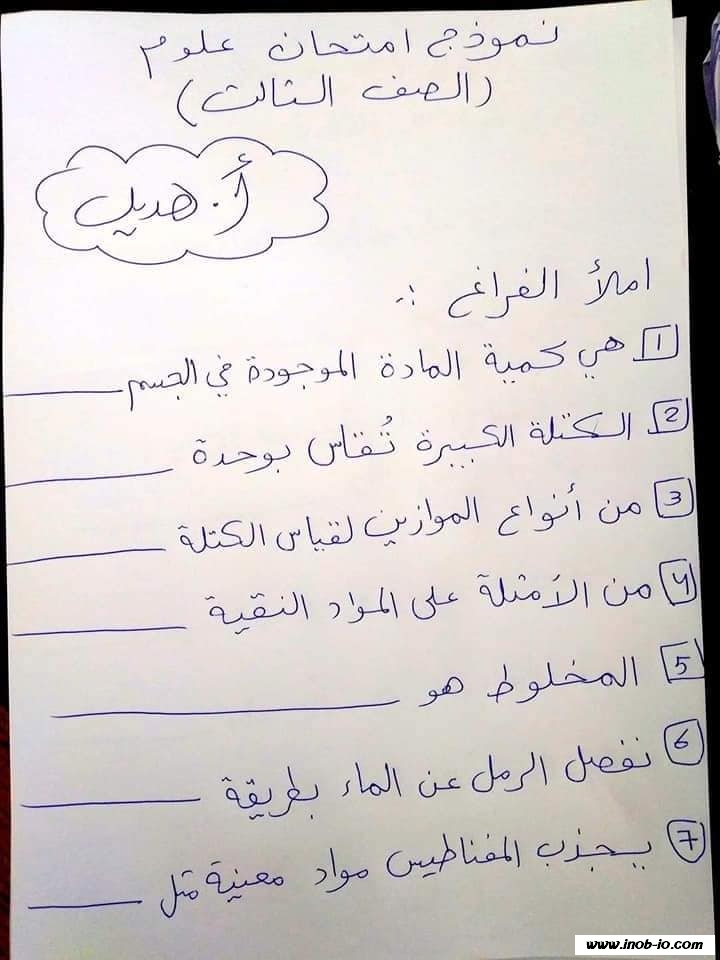 نموذج امتحان علوم
(الصف الثالث)
أ. هديل
املأ الفراغ :.
1 هي كمية المادة الموجودة في الجسم ______
2 الكتلة الكبيرة تُقاس بوحدة ______
3 من أنواع الموازين لقياس الكتلة ______
4 من الأمثلة على المواد النقية ______
5 المخلوط هو ______
6 نفصل الرمل عن الماء بطريقة ______
7 يجذب المغناطيس مواد معينة مثل ______
www.inob-io.com